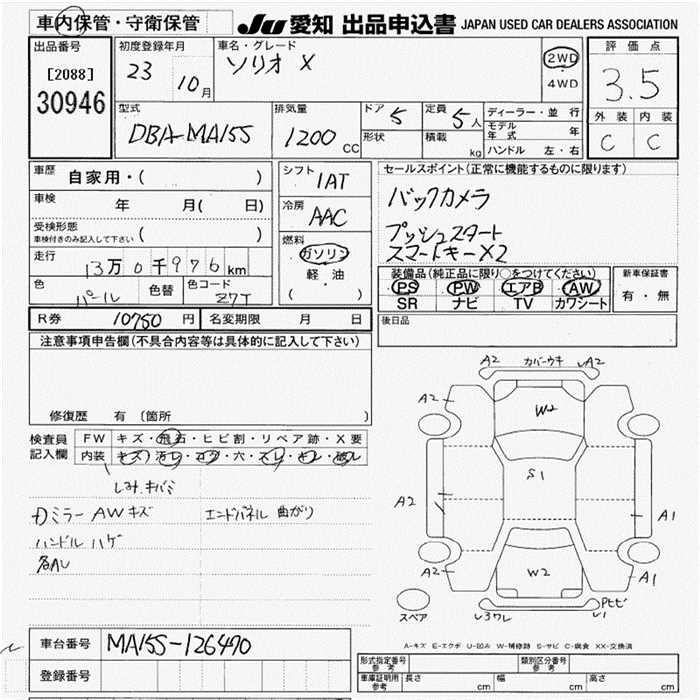 車内保管・守衛保管
JU 愛知 出品申込書 JAPAN USED CAR DEALERS ASSOCIATION
出品番号
[2088]
30946
初度登録年月
23 10月
車名・グレード
ソリオ X
2WD
・
4WD
評価点
3.5
外装 内装
C C
型式
DBA-MA15S
排気量
1200 CC
ドア 5
形状
定員 5人
積載 kg
ディーラー・並行
モデル年式 年
ハンドル 左・右
車歴 自家用・( )
車検 年 月( 日)
受検形態
車検付きのみ記入して下さい ( )
走行
13万0千976km
色 パール 色替 色コード Z7T
シフト 1AT
冷房 AAC
燃料
ガソリン
軽・油
( )
セールスポイント(正常に機能するものに限ります)
バックカメラ
プッシュスタート
スマートキーX2
装備品(純正品に限り○をつけてください)
PS PW エアB AW
SR ナビ TV カワシート
新車保証書
有・無
後日品
R券 10750円 名変期限 月 日
注意事項申告欄(不具合内容等は具体的に記入して下さい)
修復歴 有 (箇所 )
検査員記入欄
FW キズ・飛石・ヒビ割・リペア跡・X要
内装 キズ・汚レ・コゲ・穴・スレ・キレ・破レ
しみ、キバミ
ミラー AWキズ エンドパネル 曲がり
ハンドル ハゲ
各AU
A2 カバーウキ A2
A2
W2
S1
A2
A1
W2
A2 A1
スペア
U3ワレ Pヒビ U1
A-キズ E-エクボ U-凹み W-補修跡 S-サビ C-腐食 XX-交換済
車台番号 MA15S-126470
登録番号
形式指定番号 参考
類別区分番号 参考
車庫証明用 参考 長さ cm 幅 cm 高さ cm